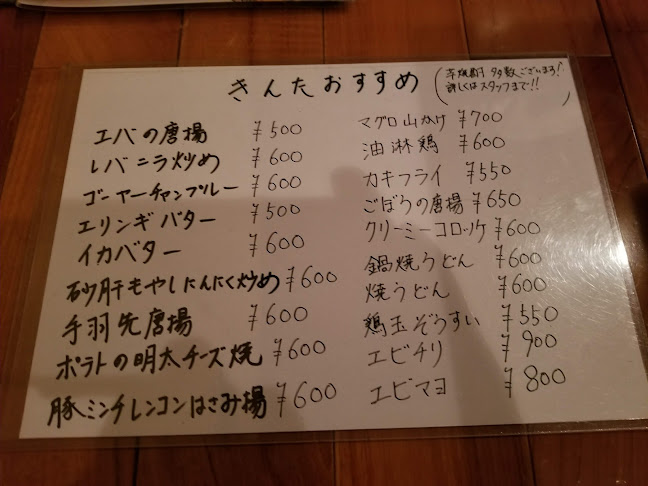 きんたおすすめ
(芋焼酎 多数ございます!
詳しくはスタッフまで!!)
エバの唐揚 ¥500
レバニラ炒め ¥600
ゴーヤーチャンプルー ¥600
エリンギバター ¥500
イカバター ¥600
砂肝もやしにんにく炒め ¥600
手羽先唐揚 ¥600
ポテトの明太チーズ焼 ¥600
豚ミンチレンコンはさみ揚 ¥600
マグロ山かけ ¥700
油淋鶏 ¥600
カキフライ ¥550
ごぼうの唐揚 ¥650
クリーミーコロッケ ¥600
鍋焼うどん ¥600
焼うどん ¥600
鶏玉ぞうすい ¥550
エビチリ ¥900
エビマヨ ¥800